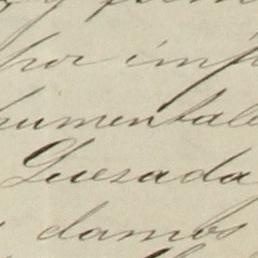 por imp
umentale
Quesada
damos